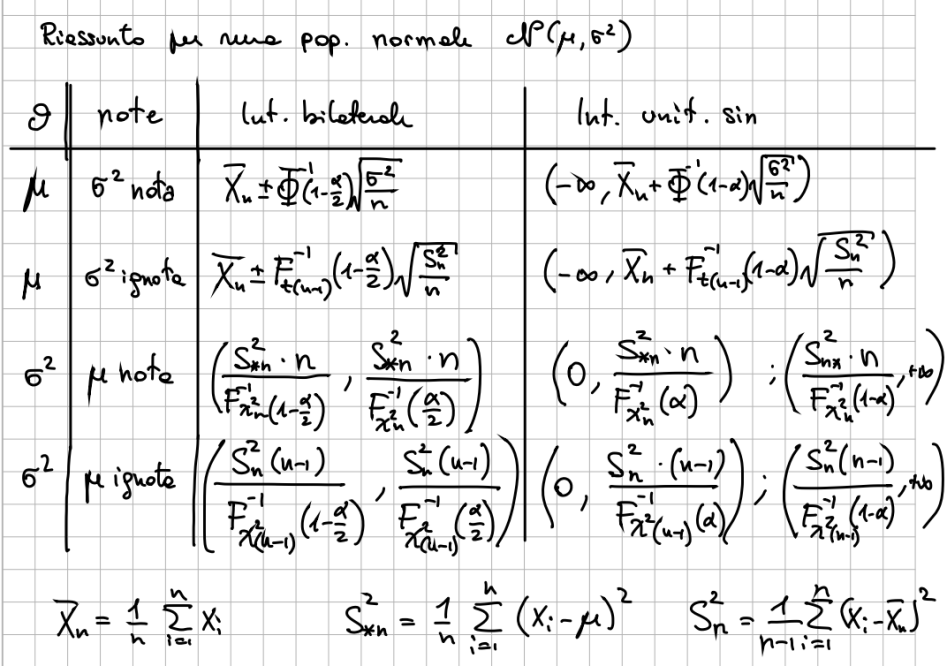 Riassunto per una pop. normale N(μ, σ²)
ϑ | note | Int. bilaterale | Int. unit. sin
μ | σ² nota | X̄ₙ ± Φ⁻¹(1-α/2)√(σ²/n) | (-∞, X̄ₙ + Φ⁻¹(1-α)√(σ²/n))
μ | σ² ignota | X̄ₙ ± F⁻¹_t(n-1)(1-α/2)√(Sₙ²/n) | (-∞, X̄ₙ + F⁻¹_t(n-1)(1-α)√(Sₙ²/n))
σ² | μ nota | (S²_*n · n / F⁻¹_χ²n(1-α/2), S²_*n · n / F⁻¹_χ²n(α/2)) | (0, S²_*n · n / F⁻¹_χ²n(α)) ; (S²_n* · n / F⁻¹_χ²n(1-α), +∞)
σ² | μ ignota | (Sₙ²(n-1) / F⁻¹_χ²(n-1)(1-α/2), Sₙ²(n-1) / F⁻¹_χ²(n-1)(α/2)) | (0, Sₙ² · (n-1) / F⁻¹_χ²(n-1)(α)) ; (Sₙ²(n-1) / F⁻¹_χ²(n-1)(1-α), +∞)
X̄ₙ = 1/n Σᵢ₌₁ⁿ Xᵢ S²_*n = 1/n Σᵢ₌₁ⁿ (Xᵢ - μ)² Sₙ² = 1/(n-1) Σᵢ₌₁ⁿ (Xᵢ - X̄ₙ)²